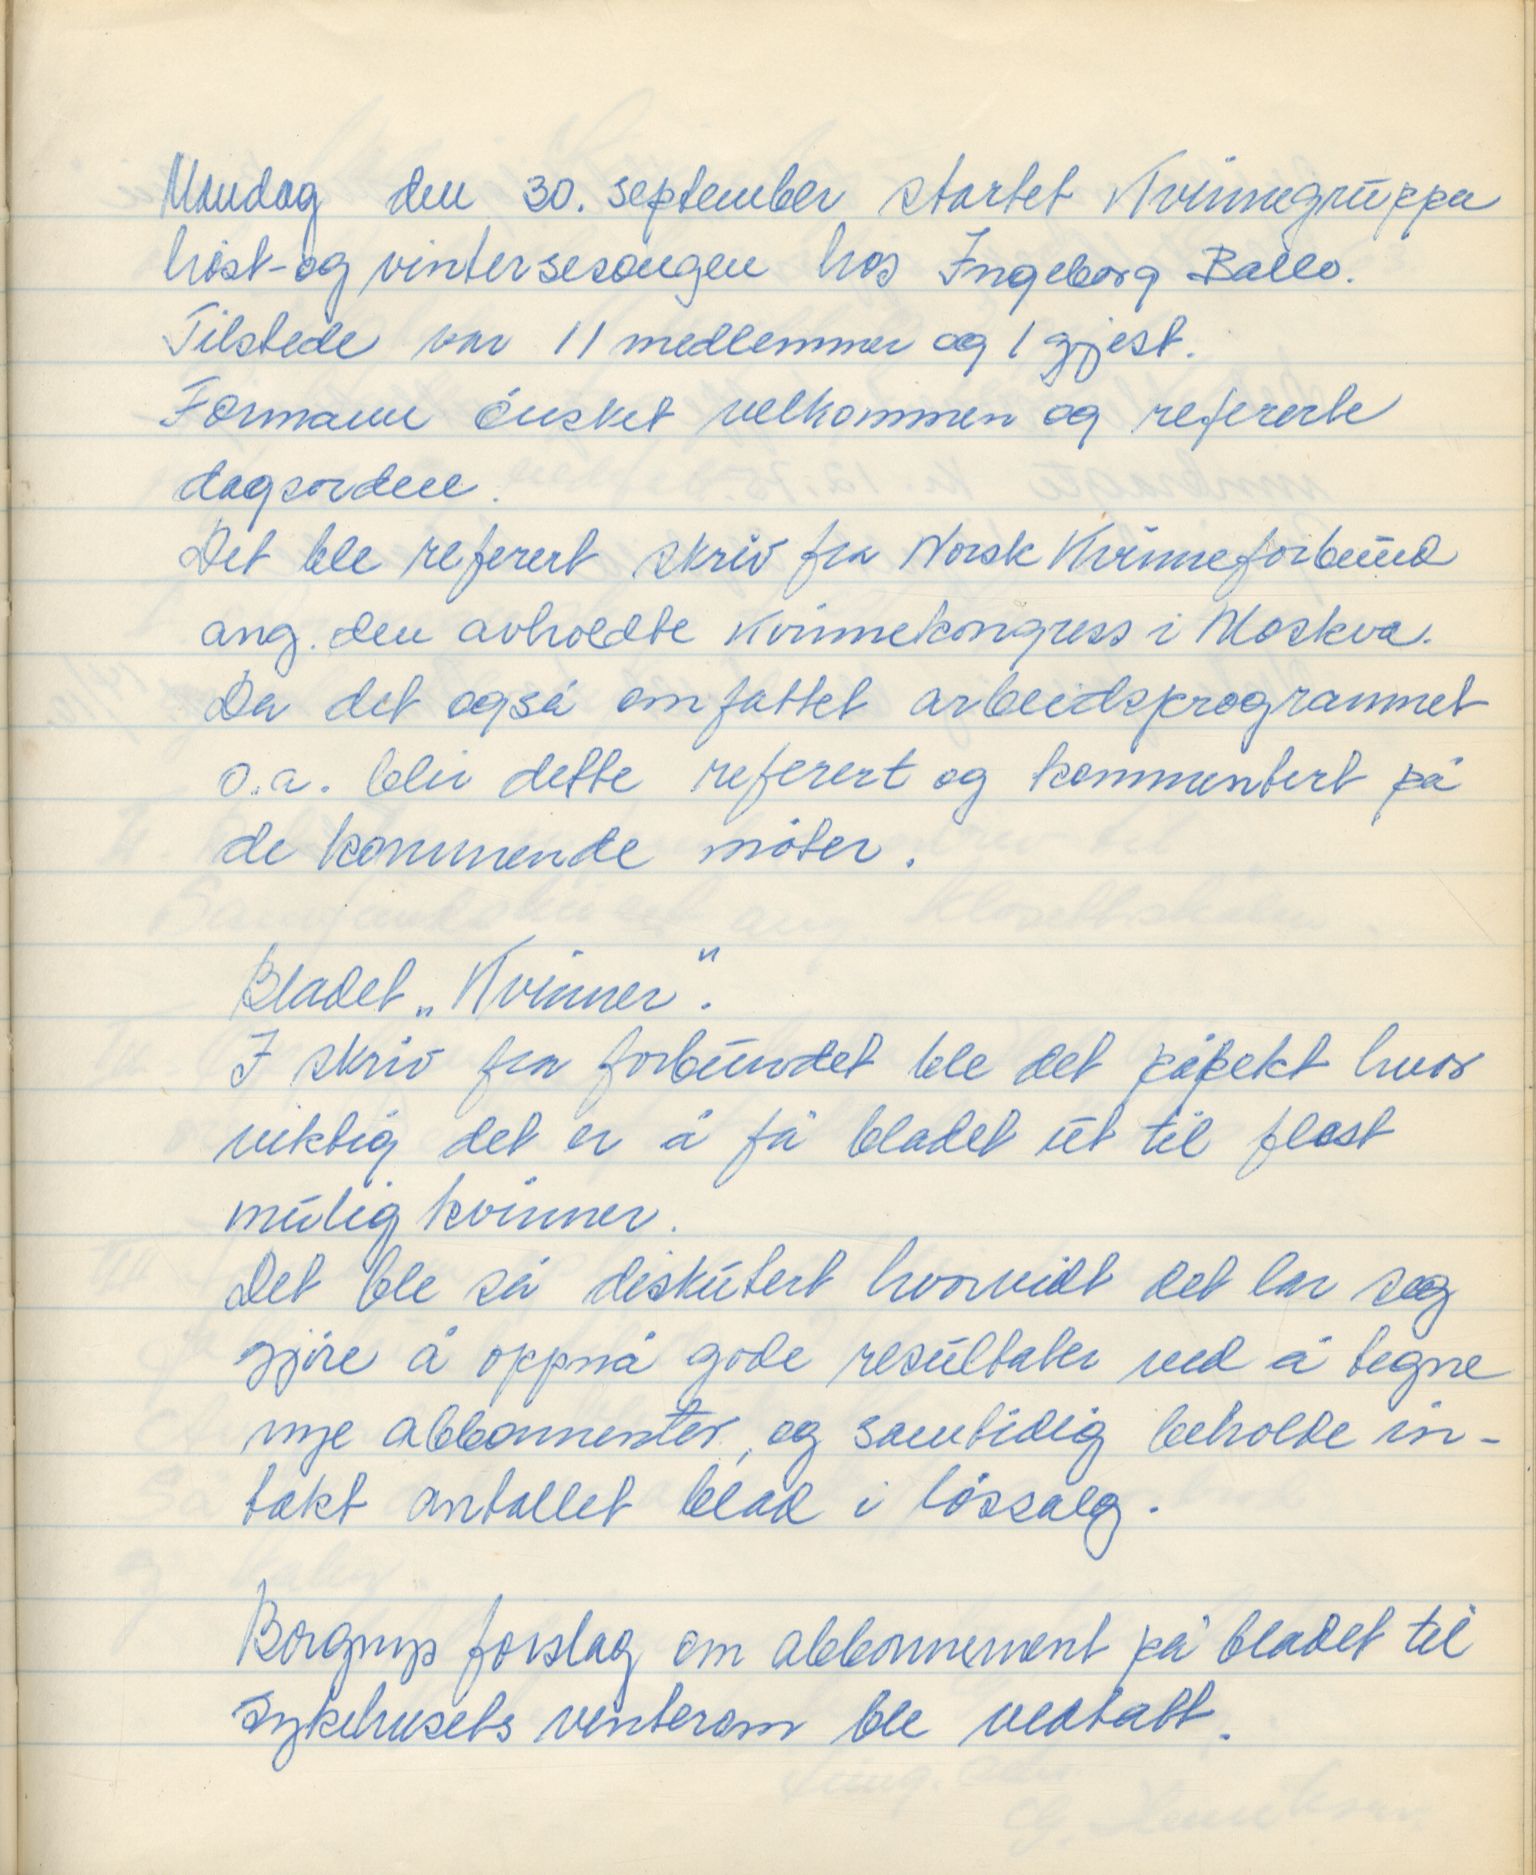 Mandag den 30. september startet Kvinnegruppa
høst- og vintersesongen hos Ingeborg Ballo.
Tilstede var 11 medlemmer og 1 gjest.
Formann ønsket velkommen og refererte
dagsorden.
Det ble referert skriv fra Norsk Kvinneforbund
ang. den avholdte Kvinnekongress i Moskva.
Da det også omfattet arbeidsprogrammet
o.a. blir dette referert og kommentert på
de kommende møter.
Bladet „Kvinner".
I skriv fra forbundet ble det påpekt hvor
viktig det er å få bladet ut til flest
mulig kvinner.
Det ble så diskutert hvorvidt det lar seg
gjøre å oppnå gode resultater ved å tegne
nye abbonnenter, og samtidig beholde in-
takt antallet blad i løssalg.
Borgnys forslag om abbonnement på bladet til
sykehusets venterom ble vedtatt.